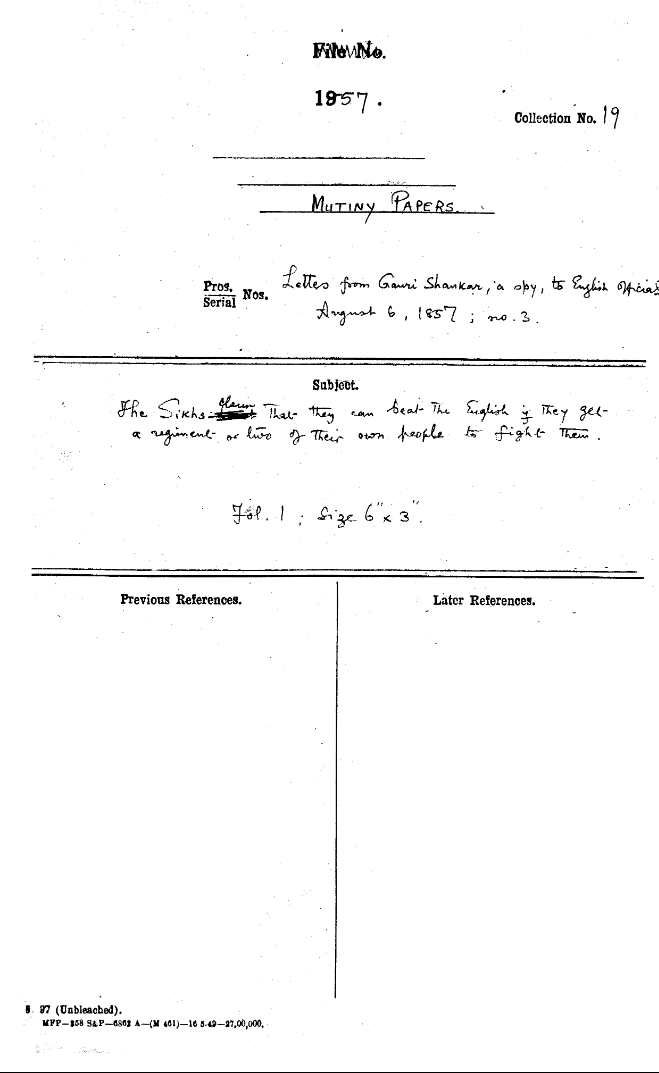 File No.
1957.
Collection No. 19
MUTINY PAPERS.
Pros. Serial Nos. Lettes from Gauri Shankar, a spy, to English Officials
August 6, 1857; no. 3.
Subject.
The Sikhs that they can beat the English if they get
a regiment or two of their own people to fight them.
Fol. 1; Size 6" x 3".
Previous References.
Later References.
S. 97 (Unbleached).
MFP—158 S&P—6862 A—(M 461)—16 5-49—27,00,000.